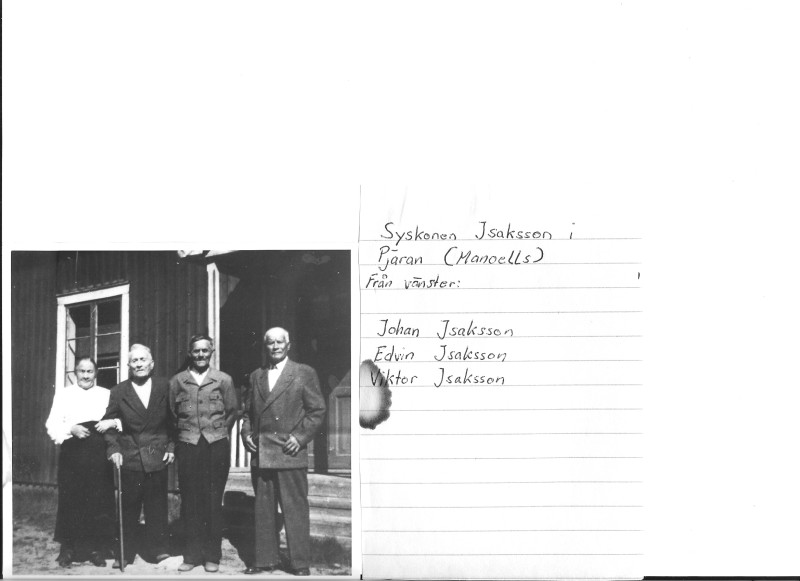 Syskonen Isaksson i
Pjäran (Manoells)
Från vänster:
Johan Isaksson
Edvin Isaksson
Viktor Isaksson